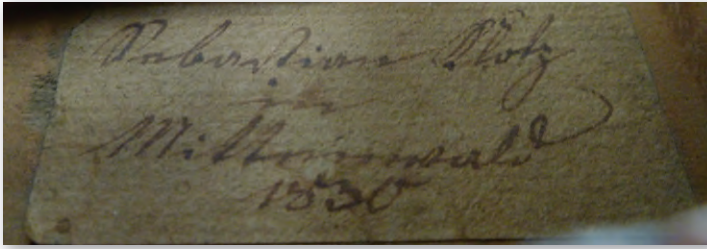 Sebastian Klotz
in
Mittenwald
1830